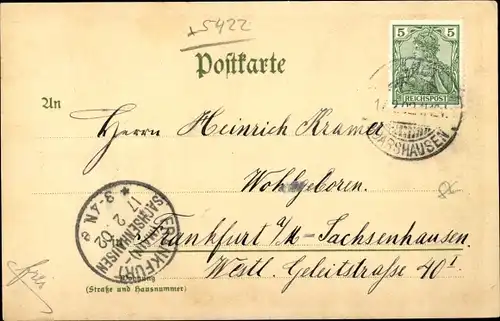 5422
5 5
REICHSPOST
Postkarte
An
Herrn Heinrich Kramer
Wohlgeboren.
Frankfurt a/M-Sachsenhausen
Westl. Geleitstraße 40 I
FRANKFURT (MAIN)-
SACHSENHAUSEN
17 2 02
3-4 N.
Wohnung
(Straße und Hausnummer)
frei